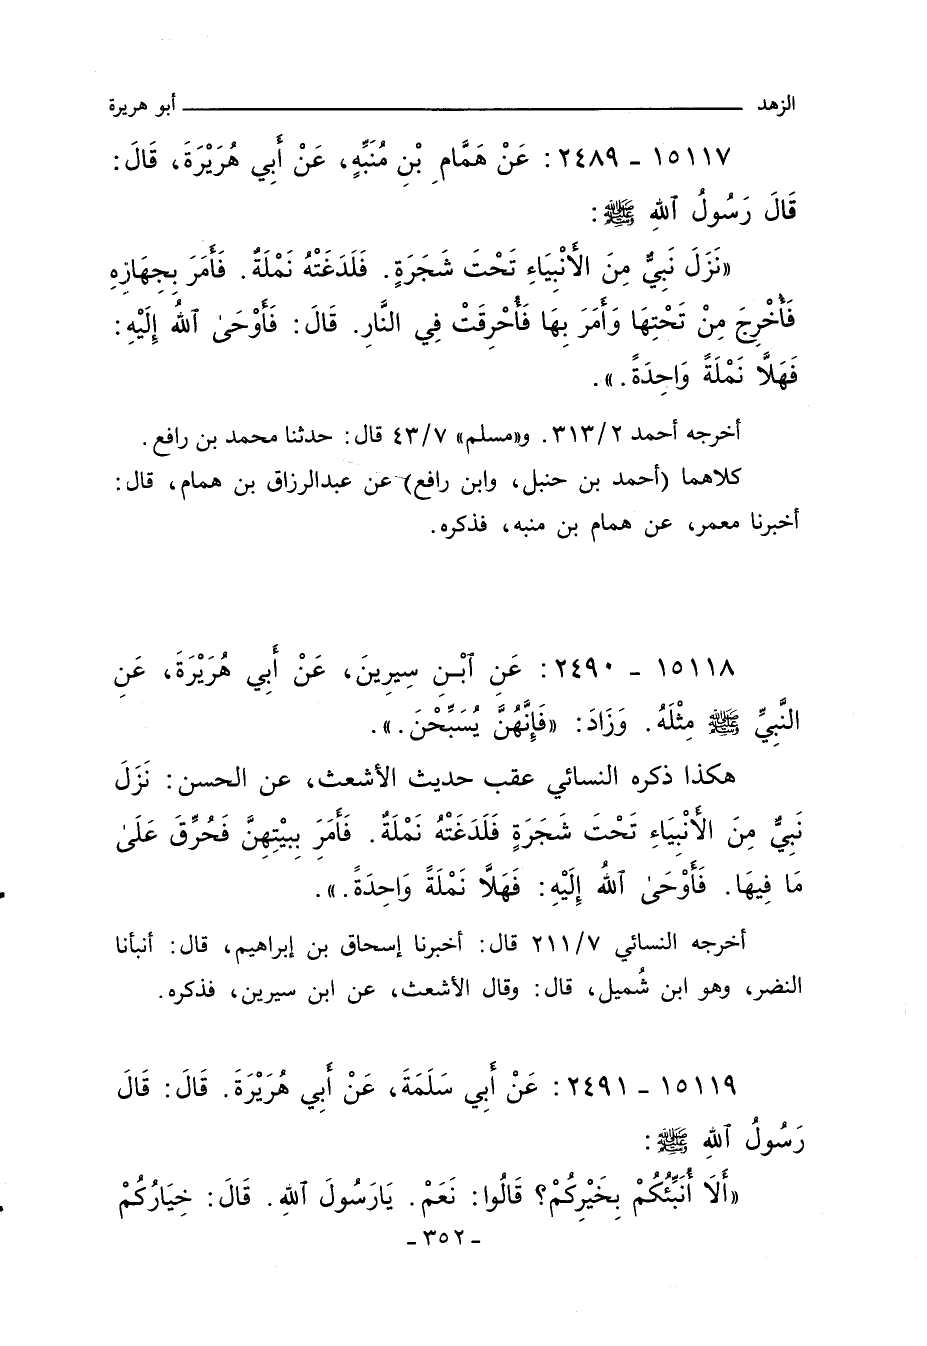 الزهد ــــــــــــــــــــ أبو هريرة
١٥١١٧ - ٢٤٨٩ : عَنْ هَمَّامِ بْنِ مُنَبِّهٍ، عَنْ أَبِي هُرَيْرَةَ، قَالَ:
قَالَ رَسُولُ ٱللهِ ﷺ:
«نَزَلَ نَبِيٌّ مِنَ الأَنْبِيَاءِ تَحْتَ شَجَرَةٍ. فَلَدَغَتْهُ نَمْلَةٌ. فَأَمَرَ بِجِهَازِهِ
فَأُخْرِجَ مِنْ تَحْتِهَا وَأَمَرَ بِهَا فَأُحْرِقَتْ فِي النَّارِ. قَالَ: فَأَوْحَىٰ ٱللهُ إِلَيْهِ:
فَهَلَّا نَمْلَةً وَاحِدَةً.».
أخرجه أحمد ٣١٣/٢. و«مسلم» ٤٣/٧ قال: حدثنا محمد بن رافع.
كلاهما (أحمد بن حنبل، وابن رافع) عن عبدالرزاق بن همام، قال:
أخبرنا معمر، عن همام بن منبه، فذكره.
١٥١١٨ - ٢٤٩٠ : عَنِ ٱبْنِ سِيرِينَ، عَنْ أَبِي هُرَيْرَةَ، عَنِ
النَّبِيِّ ﷺ مِثْلَهُ. وَزَادَ: «فَإِنَّهُنَّ يُسَبِّحْنَ.».
هكذا ذكره النسائي عقب حديث الأشعث، عن الحسن: نَزَلَ
نَبِيٌّ مِنَ الأَنْبِيَاءِ تَحْتَ شَجَرَةٍ فَلَدَغَتْهُ نَمْلَةٌ. فَأَمَرَ بِبَيْتِهِنَّ فَحُرِّقَ عَلَىٰ
مَا فِيهَا. فَأَوْحَىٰ ٱللهُ إِلَيْهِ: فَهَلَّا نَمْلَةً وَاحِدَةً.».
أخرجه النسائي ٢١١/٧ قال: أخبرنا إسحاق بن إبراهيم، قال: أنبأنا
النضر، وهو ابن شُميل، قال: وقال الأشعث، عن ابن سيرين، فذكره.
١٥١١٩ - ٢٤٩١ : عَنْ أَبِي سَلَمَةَ، عَنْ أَبِي هُرَيْرَةَ. قَالَ: قَالَ
رَسُولُ ٱللهِ ﷺ:
«أَلَا أُنَبِّئُكُمْ بِخَيْرِكُمْ؟ قَالُوا: نَعَمْ. يَارَسُولَ ٱللهِ. قَالَ: خِيَارُكُمْ
- ٣٥٢ -